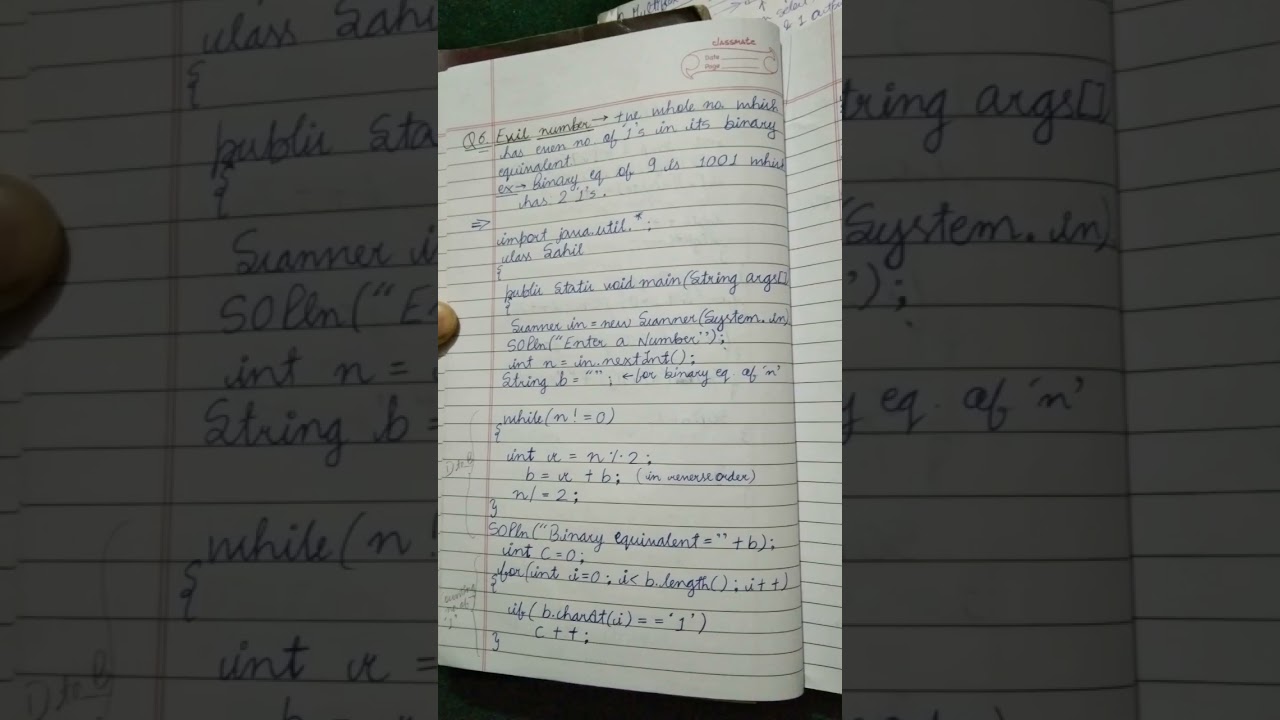 classmate
Date
Page
Q6. Evil number → +ve whole no. which
has even no. of '1's in its binary
equivalent.
ex → Binary eq. of 9 is 1001 which
has 2 '1's.
⇒
import java.util.*;
class Sahil
{
public static void main(String args[]
{
Scanner in = new Scanner(System.in)
SOPln("Enter a Number");
int n = in.nextInt();
String b = ""; ← for binary eq. of 'n'
while(n != 0)
{
int r = n % 2;
b = r + b; (in reverse order)
n/=2;
}
SOPln("Binary equivalent=" + b);
int c=0;
for(int i=0; i< b.length(); i++)
{
if( b.charAt(i) == '1')
c++;
}
D to B
counting
no. of
'1'